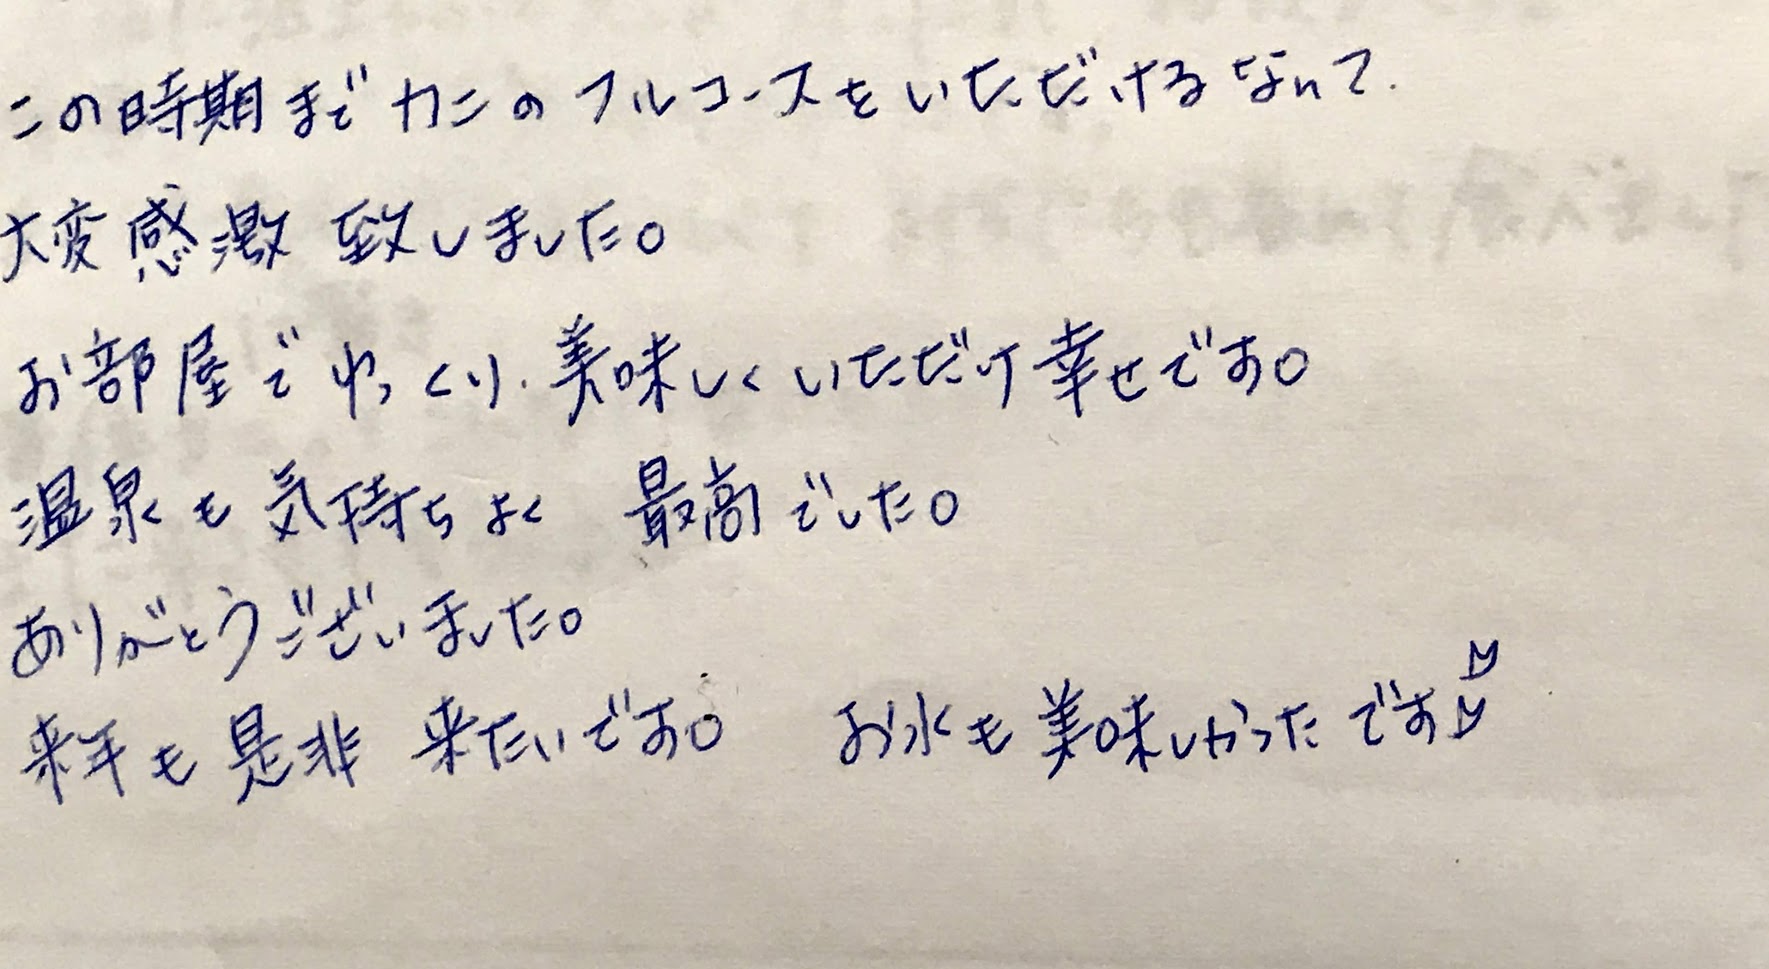 この時期までカニのフルコースをいただけるなんて、
大変感激致しました。
お部屋でゆっくり、美味しくいただけ幸せです。
温泉も気持ちよく 最高でした。
ありがとうございました。
来年も是非 来たいです。 お水も美味しかったです♡♡